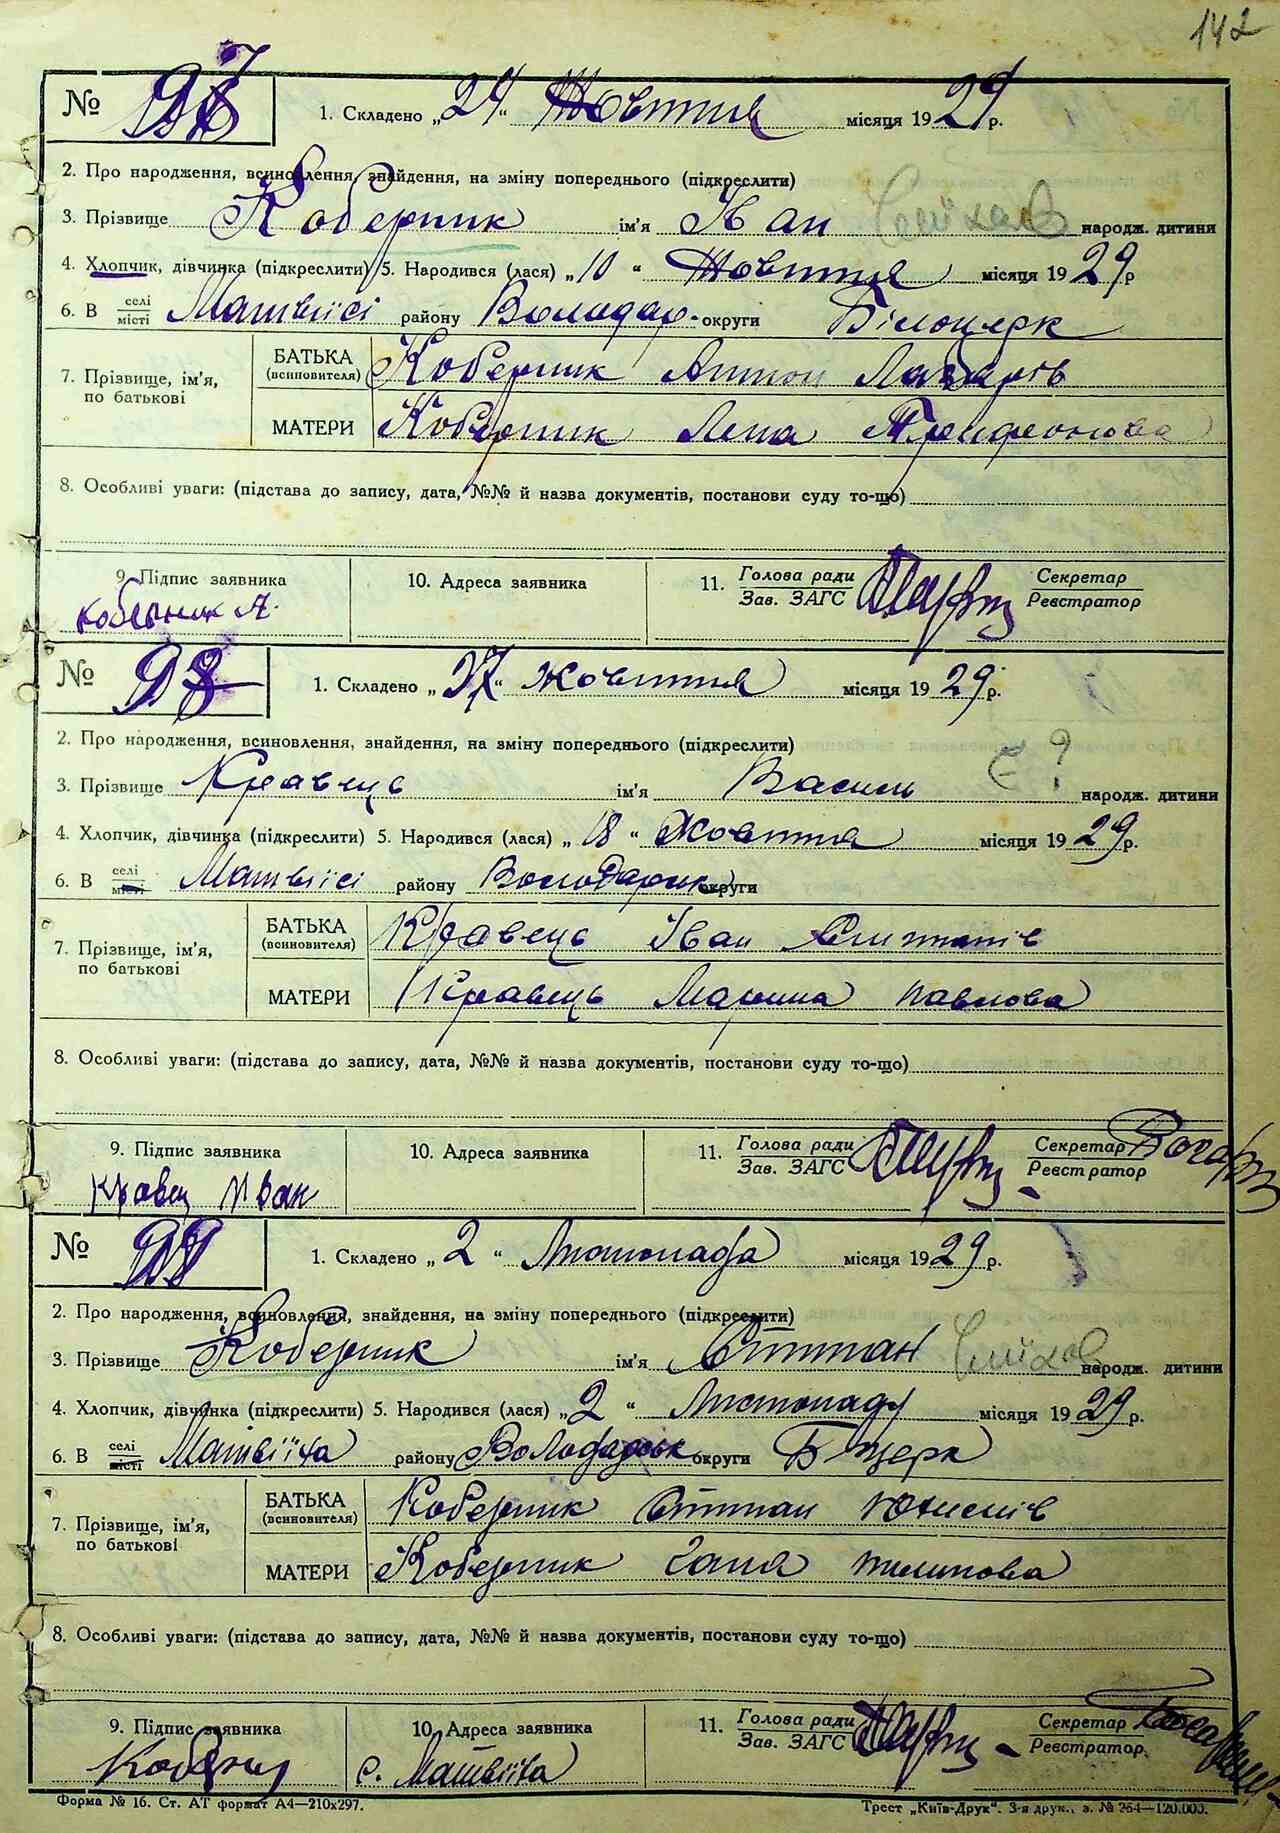 142
№ 97 1. Складено „24“ Жовтня місяця 1929 р.
2. Про народження, всиновлення, знайдення, на зміну попереднього (підкреслити)
3. Прізвище Коберник ім'я Іван народж. дитини
4. Хлопчик, дівчинка (підкреслити) 5. Народився (лася) „10“ Жовтня місяця 1929 р
6. В селі місті Матвіїсі району Володар. округи Білоцерк
7. Прізвище, ім'я, по батькові БАТЬКА (всиновителя) Коберник Антон Лазарів
МАТЕРИ Коберник Лена Трифонова
8. Особливі уваги: (підстава до запису, дата, №№ й назва документів, постанови суду то-що)
9. Підпис заявника 10. Адреса заявника 11. Голова ради Зав. ЗАГС Секретар Реєстратор
Коберник А.
№ 98 1. Складено „27“ жовтня місяця 1929 р.
2. Про народження, всиновлення, знайдення, на зміну попереднього (підкреслити)
3. Прізвище Кравець ім'я Василь ? народж. дитини
4. Хлопчик, дівчинка (підкреслити) 5. Народився (лася) „18“ Жовтня місяця 1929 р.
6. В селі місті Матвіїсі району Володарськ округи
7. Прізвище, ім'я, по батькові БАТЬКА (всиновителя) Кравець Іван
МАТЕРИ Кравець Марина Павлова
8. Особливі уваги: (підстава до запису, дата, №№ й назва документів, постанови суду то-що)
9. Підпис заявника 10. Адреса заявника 11. Голова ради Зав. ЗАГС Секретар Реєстратор
Кравец Иван
№ 99 1. Складено „2“ Листопада місяця 1929 р.
2. Про народження, всиновлення, знайдення, на зміну попереднього (підкреслити)
3. Прізвище Коберник ім'я Стипан народж. дитини
4. Хлопчик, дівчинка (підкреслити) 5. Народився (лася) „2“ Листопаду місяця 1929 р.
6. В селі місті Матвіїха району Володарськ округи Б церк
7. Прізвище, ім'я, по батькові БАТЬКА (всиновителя) Коберник Стипан
МАТЕРИ Коберник Ганя Пилипова
8. Особливі уваги: (підстава до запису, дата, №№ й назва документів, постанови суду то-що)
9. Підпис заявника 10. Адреса заявника 11. Голова ради Зав. ЗАГС Секретар Реєстратор
с. Матвіїха
Форма № 16. Ст. АТ формат А4—210х297. Трест „Київ-Друк“. 3-я друк., з. № 264—120.000.